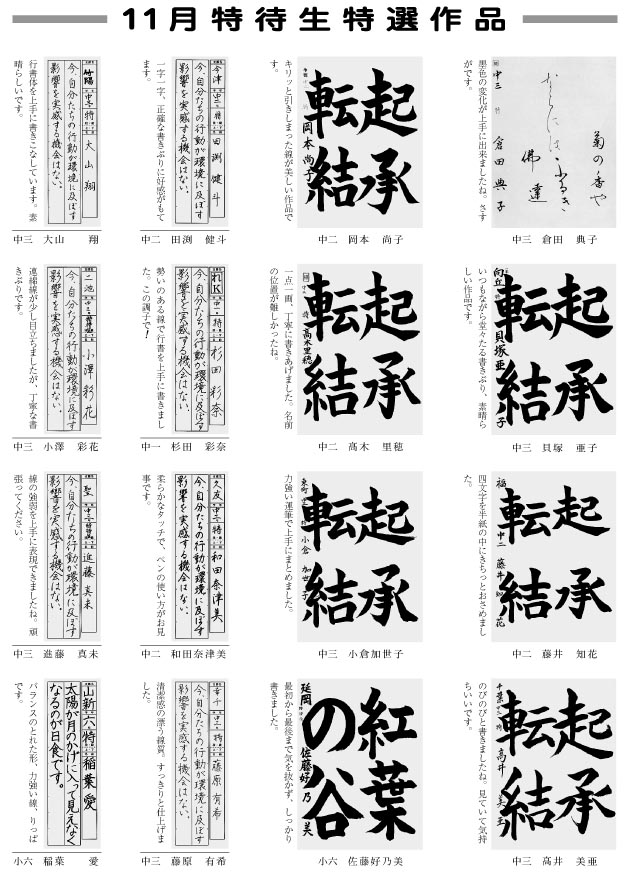 11月特待生特選作品
菊の香や
ならには
ふるき
佛達
中三
倉田典子
墨色の変化が上手に出来ましたね。さす
がです。
中三 倉田 典子
起承
転結
岡本尚子
キリッと引きしまった線が美しい作品で
す。
中二 岡本 尚子
今津
中二
特
田渕健斗
今、自分たちの行動が環境に及ぼす
影響を実感する機会はない、
一字一字、正確な書きぶりに好感がもて
ます。
中二 田渕 健斗
竹陽
中三
特
大山翔
今、自分たちの行動が環境に及ぼす
影響を実感する機会はない、
行書体を上手に書きこなしています。素
晴らしいです。
中三 大山 翔
起承
転結
向丘
貝塚亜子
いつもながら堂々たる書きぶり、素晴ら
しい作品です。
中三 貝塚 亜子
起承
転結
髙木里穂
一点一画、丁寧に書きあげました。名前
の位置が難しかったね。
中二 髙木 里穂
れK
中一
特
杉田彩奈
今、自分たちの行動が環境に及ぼす
影響を実感する機会はない、
勢いのある線で行書を上手に書きまし
た。この調子で!
中一 杉田 彩奈
二池
中三
小澤彩花
今、自分たちの行動が環境に及ぼす
影響を実感する機会はない、
連綿線が少し目立ちましたが、丁寧な書
きぶりです。
中三 小澤 彩花
起承
転結
福
中二
藤井知花
四文字を半紙の中にきちっとおさめまし
た。
中二 藤井 知花
起承
転結
小倉加世子
力強い運筆で上手にまとめました。
中三 小倉加世子
久友
中二
特
和田奈津美
今、自分たちの行動が環境に及ぼす
影響を実感する機会はない、
柔らかなタッチで、ペンの使い方がお見
事です。
中二 和田奈津美
聖
中三
進藤真未
今、自分たちの行動が環境に及ぼす
影響を実感する機会はない、
線の強弱を上手に表現できましたね。頑
張ってください。
中三 進藤 真未
起承
転結
千葉
中三
特
髙井美亜
のびのびと書きましたね。見ていて気持
ちいいです。
中三 髙井 美亜
紅葉
の谷
延岡
佐藤好乃美
最初から最後まで気を抜かず、しっかり
書きました。
小六 佐藤好乃美
幸千
中三
特
藤原有希
今、自分たちの行動が環境に及ぼす
影響を実感する機会はない、
清潔感の漂う線質。すっきりと仕上げま
した。
中三 藤原 有希
山新
六
特
稲葉愛
太陽が月のかげに入って見えなく
なるのが日食です。
バランスのとれた形、力強い線、りっぱ
です。
小六 稲葉 愛